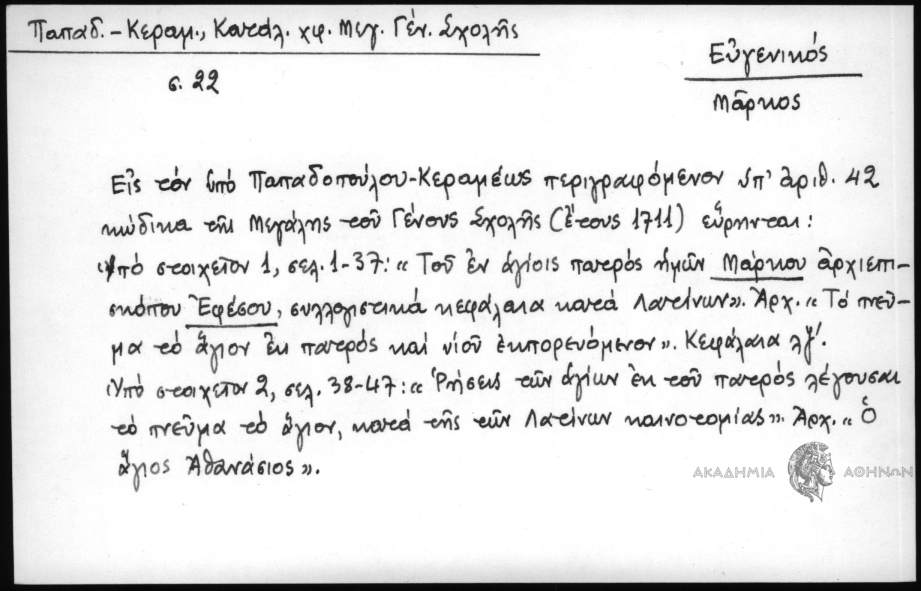 Παπαδ.-Κεραμ., Κατάλ. χφ. Μεγ. Γέν. Σχολῆς
σ. 22
Εὐγενικός
Μᾶρκος
Εἰς τὸν ὑπὸ Παπαδοπούλου-Κεραμέως περιγραφόμενον ὑπ' ἀριθ. 42
κώδικα τῆς Μεγάλης τοῦ Γένους Σχολῆς (ἔτους 1711) εὕρηνται:
Ὑπὸ στοιχεῖον 1, σελ. 1-37: «Τοῦ ἐν ἁγίοις πατρὸς ἡμῶν Μάρκου ἀρχιεπι-
σκόπου Ἐφέσου, συλλογιστικά κεφάλαια κατά Λατίνων». Ἀρχ. «Τό πνεῦ-
μα τό ἅγιον ἐκ πατρός καί υἱοῦ ἐκπορευόμενον». Κεφάλαια λζ'.
Ὑπό στοιχεῖον 2, σελ. 38-47: «Ῥήσεις τῶν ἁγίων ἐκ τοῦ πατρός λέγουσαι
τό πνεῦμα τό ἅγιον, κατά τῆς τῶν Λατίνων καινοτομίας». Ἀρχ. «Ὁ
ἅγιος Ἀθανάσιος».
ΑΚΑΔΗΜΙΑ ΑΘΗΝΩΝ